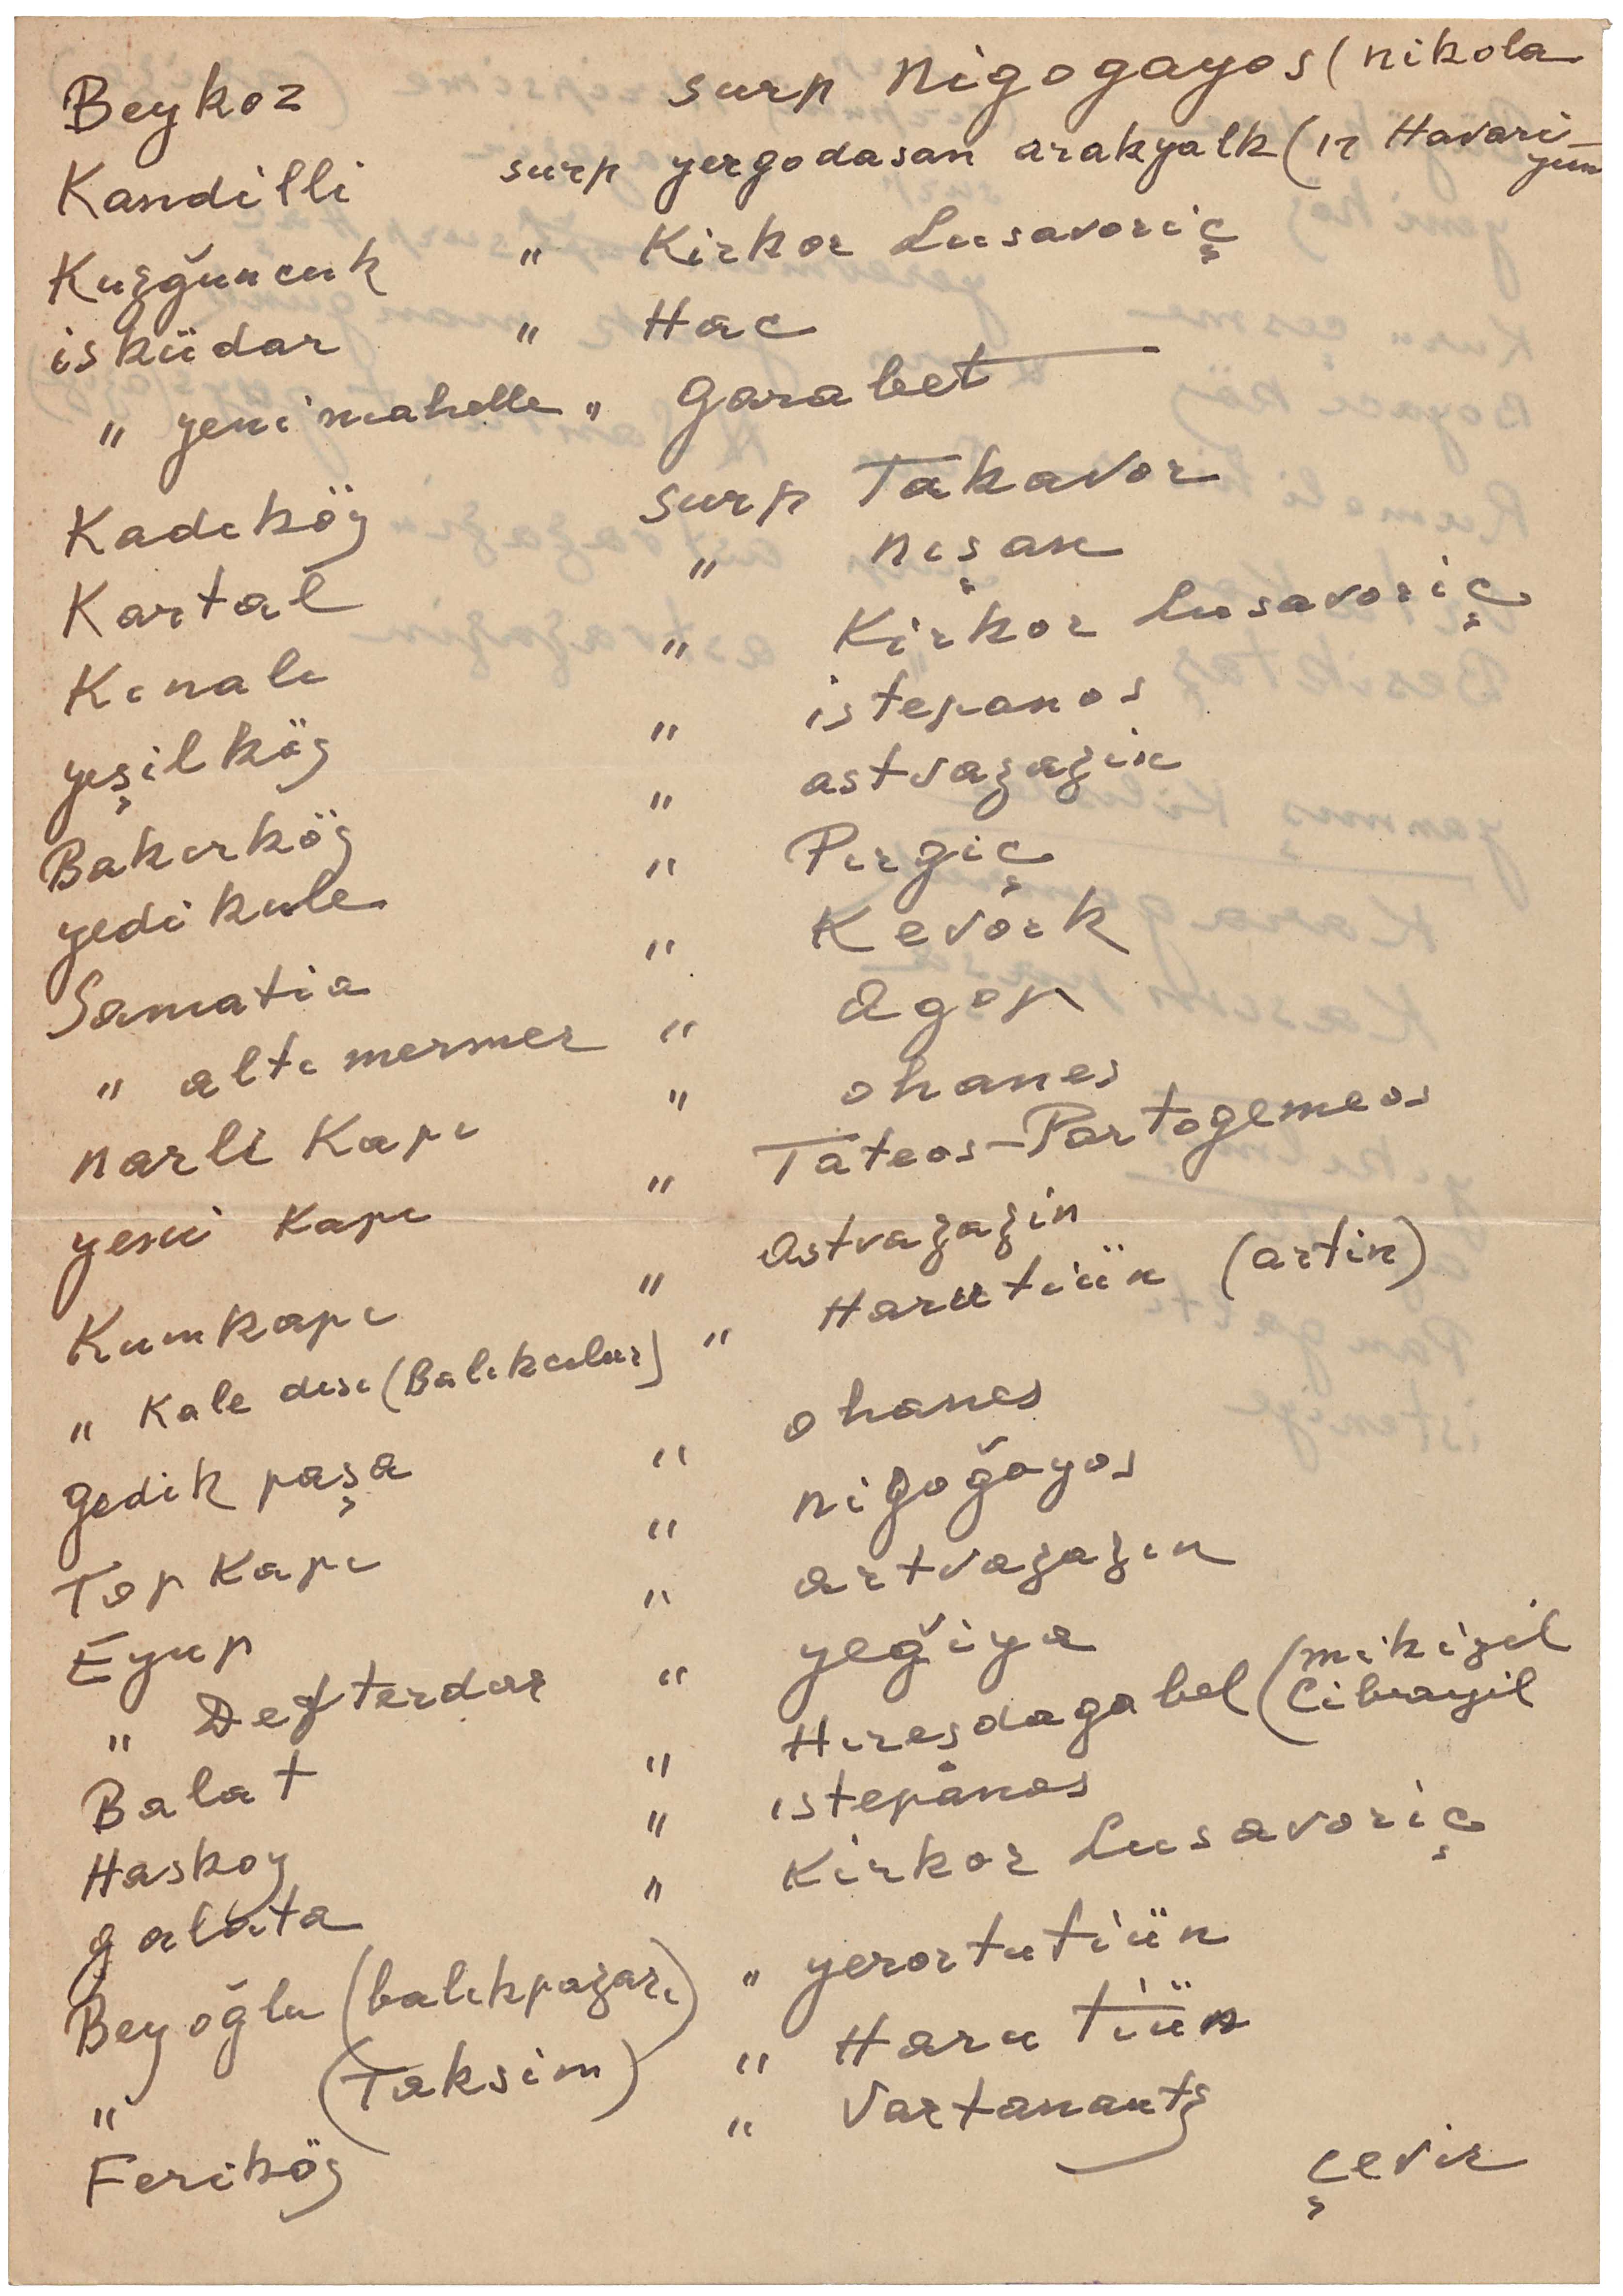 Beykoz surp Nigogayos (nikola
Kandilli surp yergodasan arakyalk (12 Havari-
yun
Kuzğuncuk " Kirkor Lusavoriç
isküdar " Hac
" yenimahelle " garabet
Kadıköy surp Takavor
Kartal " nışan
Kınalı " Kirkor Lusavoriç
yeşilköy " istepanos
Bakırköy " astvazazin
yedikule " Pırgiç
Samatia " Kevork
" altı mermer " agop
narlı Kapı " ohanes
yeni Kapı " Tateos-Partogemeos
Kumkapı " Astvazazin
" Kale dışı (Balıkcılar) " Harutiün (artin)
gedik paşa " ohanes
Top Kapı " nigoğayos
Eyup " artvazazın
" Defterdar " yeğiya
Balat " Hıreşdagabel (mikizil
Cibrayil
Haskoy " istepanos
galata " Kirkor Lusavoriç
Beyoğlu (balıkpazarı) " yerortutiün
" (Taksim) " Harutiün
Feriköy " Vartanantz
çevir